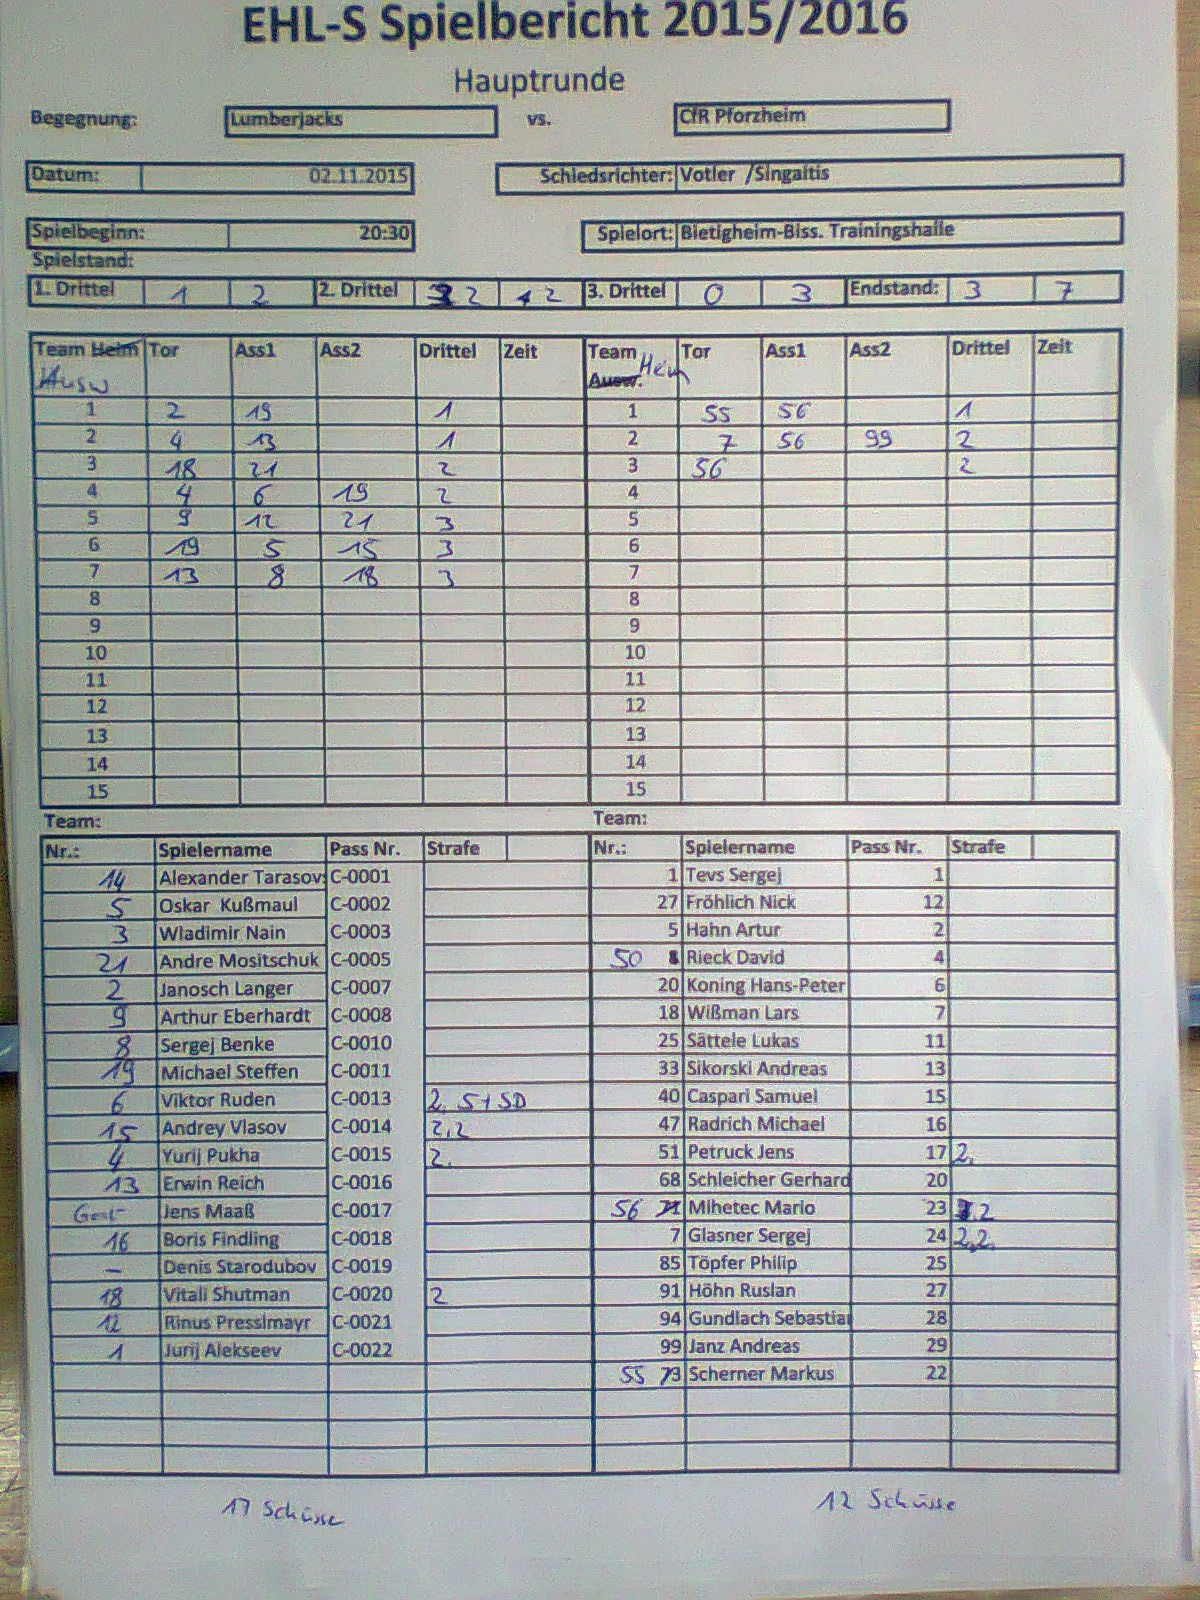 EHL-S Spielbericht 2015/2016
Hauptrunde
Begegnung: Lumberjacks vs. CfR Pforzheim
Datum: 02.11.2015 Schiedsrichter: Votler /Singaitis
Spielbeginn: 20:30 Spielort: Bietigheim-Biss. Trainingshalle
Spielstand:
1. Drittel 1 2 2. Drittel 2 2 3. Drittel 0 3 Endstand: 3 7
Team Heim Tor Ass1 Ass2 Drittel Zeit Team Heim Tor Ass1 Ass2 Drittel Zeit
Ausw Ausw.
1 2 19 1 1 55 56 1
2 4 13 1 2 7 56 99 2
3 18 21 2 3 56 2
4 4 6 19 2 4
5 9 12 21 3 5
6 19 5 15 3 6
7 13 8 18 3 7
8 8
9 9
10 10
11 11
12 12
13 13
14 14
15 15
Team: Team:
Nr.: Spielername Pass Nr. Strafe Nr.: Spielername Pass Nr. Strafe
14 Alexander Tarasovs C-0001 1 Tevs Sergej 1
5 Oskar Kußmaul C-0002 27 Fröhlich Nick 12
3 Wladimir Nain C-0003 5 Hahn Artur 2
21 Andre Mositschuk C-0005 50 Rieck David 4
2 Janosch Langer C-0007 20 Koning Hans-Peter 6
9 Arthur Eberhardt C-0008 18 Wißman Lars 7
8 Sergej Benke C-0010 25 Sättele Lukas 11
19 Michael Steffen C-0011 33 Sikorski Andreas 13
6 Viktor Ruden C-0013 2, 5+SD 40 Caspari Samuel 15
15 Andrey Vlasov C-0014 2,2 47 Radrich Michael 16
4 Yurij Pukha C-0015 2. 51 Petruck Jens 17 2.
13 Erwin Reich C-0016 68 Schleicher Gerhard 20
Jens Maaß C-0017 56 71 Mihetec Mario 23 2
16 Boris Findling C-0018 7 Glasner Sergej 24 2,2,
— Denis Starodubov C-0019 85 Töpfer Philip 25
18 Vitali Shutman C-0020 2 91 Höhn Ruslan 27
12 Rinus Presslmayr C-0021 94 Gundlach Sebastian 28
1 Jurij Alekseev C-0022 99 Janz Andreas 29
55 73 Scherner Markus 22
17 Schüsse 12 Schüsse